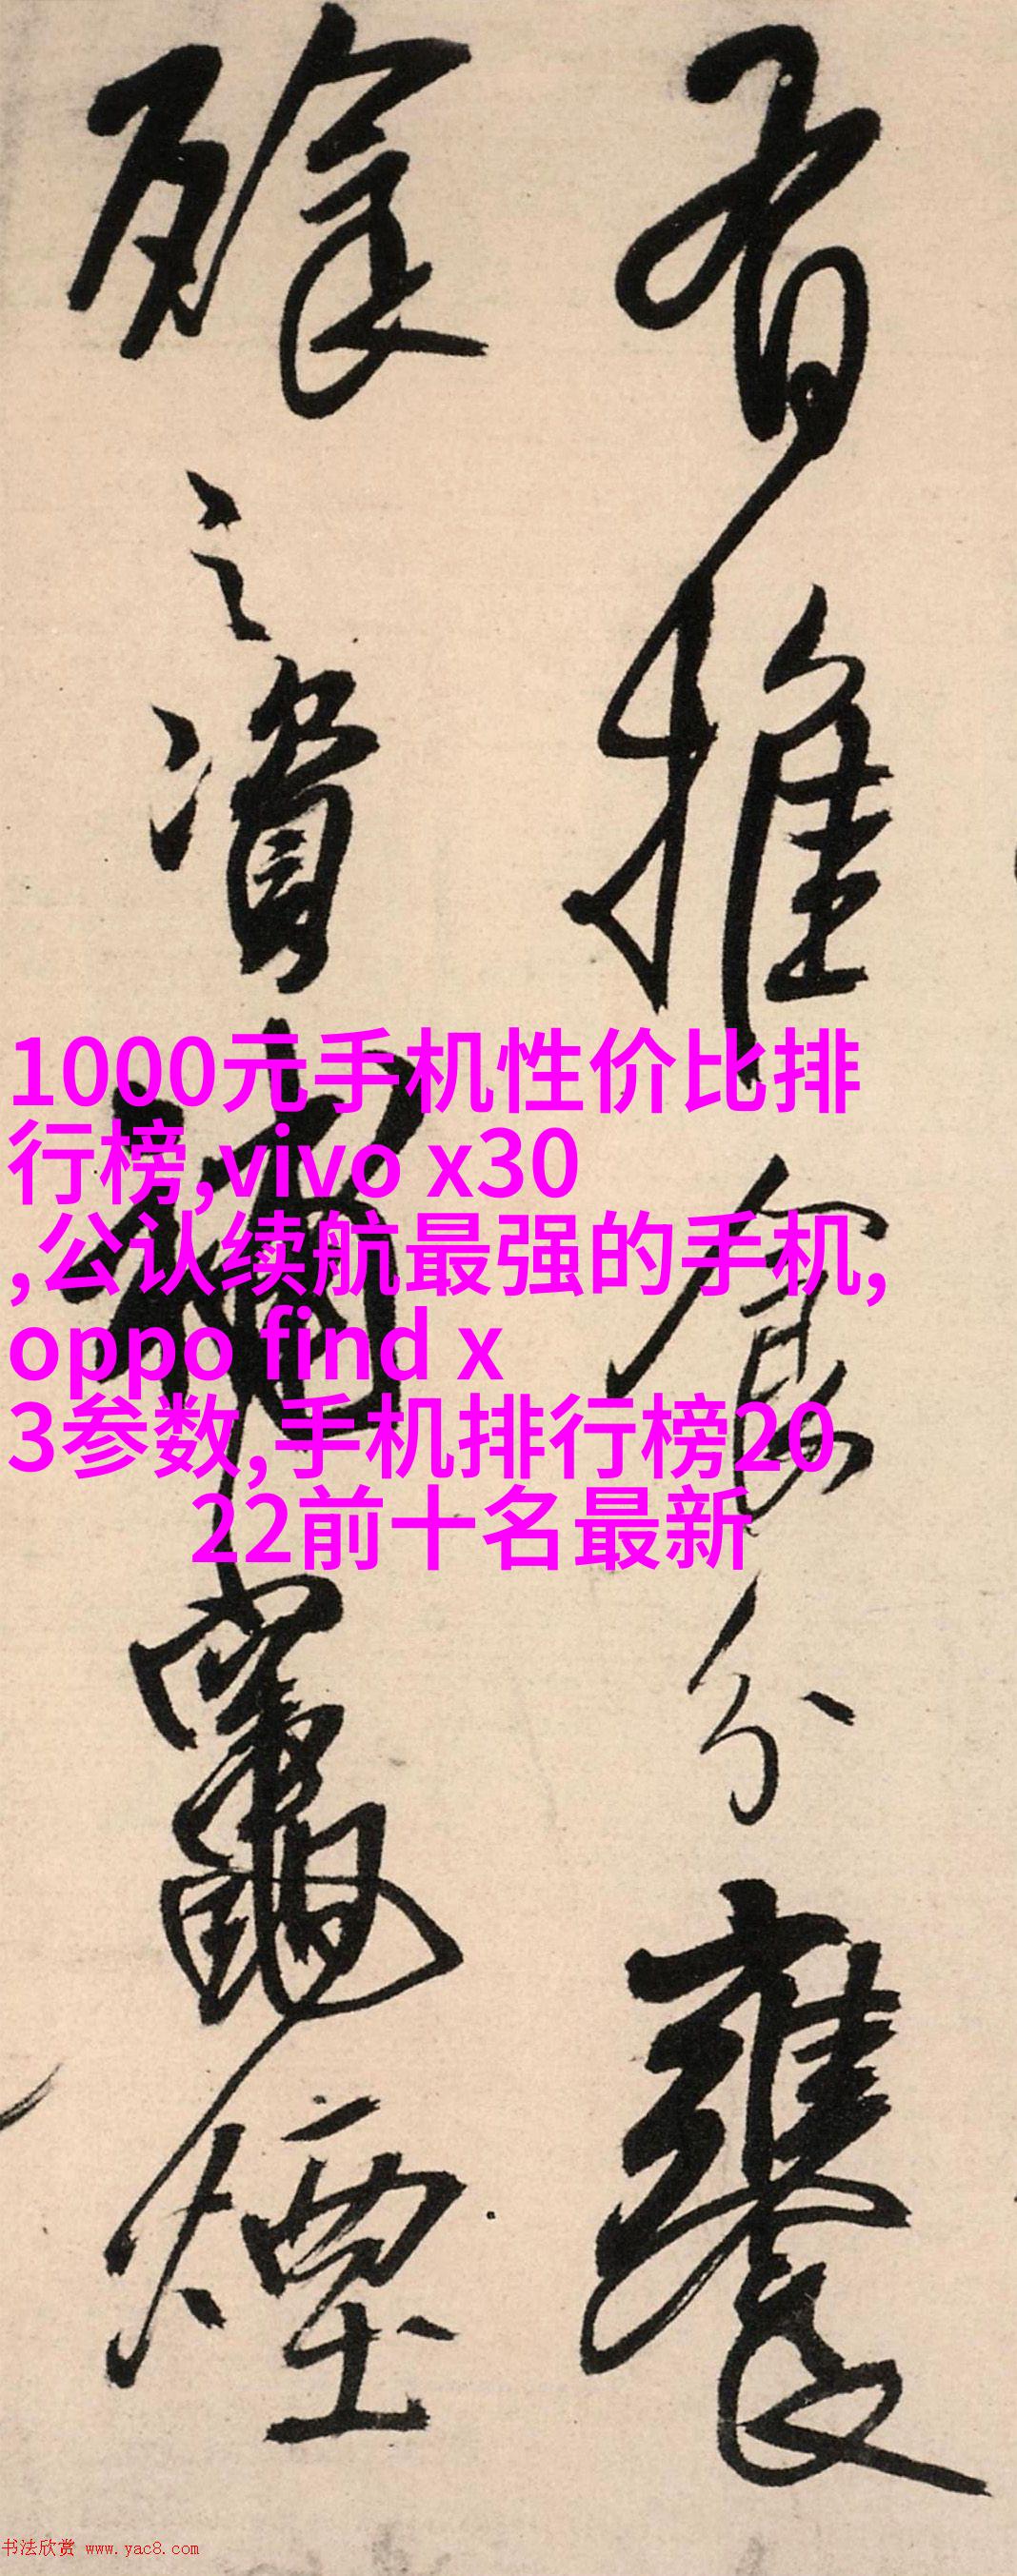 有推食分饔
餘之資補竈煙
1000元手机性价比排
行榜,vivo x30
,公认续航最强的手机,
oppo find x
3参数,手机排行榜20
22前十名最新
书法欣赏 www.yac8.com